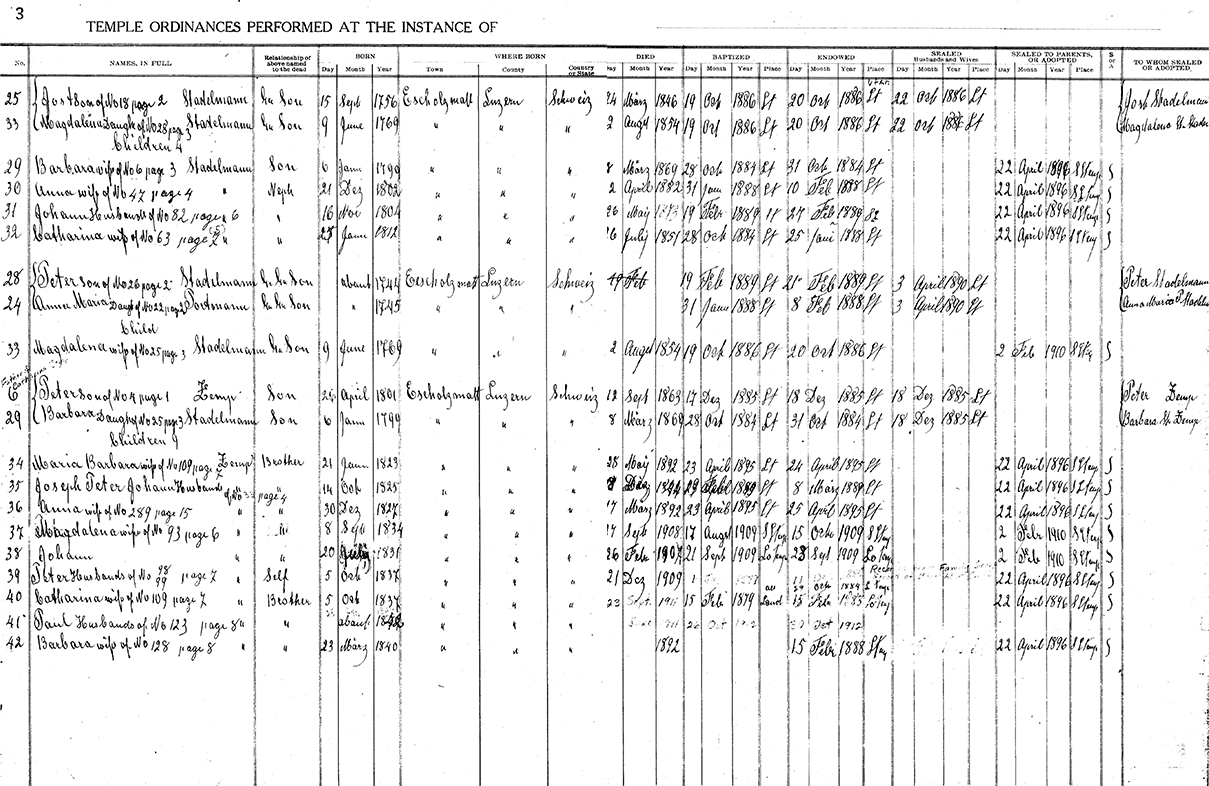 3
TEMPLE ORDINANCES PERFORMED AT THE INSTANCE OF
No. NAMES, IN FULL Relationship of above named to the dead BORN Day Month Year WHERE BORN Town County Country or State DIED Day Month Year BAPTIZED Day Month Year Place ENDOWED Day Month Year Place SEALED Husbands and Wives Day Month Year Place SEALED TO PARENTS, OR ADOPTED Day Month Year Place S or A TO WHOM SEALED OR ADOPTED
25 Jost son of No 18 page 2 Stadelmann Gr Son 15 Sept 1756 Escholzmatt Luzern Schweiz 24 März 1846 19 Oct 1886 Lt 20 Oct 1886 Lt 22 Oct 1886 Lt Jost Stadelman
33 Magdalena Daugh of No 28 page 3 Stadelmann Gr Son 9 June 1769 " " " 2 Augt 1854 19 Oct 1886 Lt 20 Oct 1886 Lt 22 Oct 1886 Lt Magdalena
Children 4
29 Barbara wif of No 6 page 3 Stadelmann Son 6 Jann 1799 " " " 8 März 1869 28 Oct 1884 Lt 31 Oct 1884 Lt 22 April 1896 S L Temp S
30 Anna wif of No 47 page 4 " Neph 21 Dez 1802 " " " 2 April 1882 31 Jan 1888 Lt 10 Feb 1888 Lt 22 April 1896 S L Temp S
31 Johann Husbands of No 82 page 6 " " 16 Nov 1804 " " " 26 May 19 Febr 1889 Lt 27 Feb 1889 22 April 1896 S L Temp S
32 Catharina wif of No 63 page 5 " " 28 Jann 1812 " " " 16 July 1851 28 Oct 1884 Lt 25 Jan 1888 Lt 22 April 1896 S L Temp S
28 Peter son of No 26 page 2 Stadelmann Gr Gr Son about 1744 Escholzmatt Luzern Schweiz 19 Feb 19 Feb 1889 Lt 21 Feb 1889 Lt 3 April 1890 Lt Peter Stadelmann
24 Anna Maria Daugh of No 22 page 2 Portmann Gr Gr Son " 1745 " " " 31 Jann 1888 Lt 8 Feb 1888 Lt 3 April 1890 Lt Anna Maria P
Child
33 Magdalena wif of No 25 page 3 Stadelmann Gr Son 9 June 1769 " " " 2 Augst 1854 19 Oct 1886 Lt 20 Oct 1886 Lt 2 Feb 1910 S
6 Peter son of No 4 page 1 Zemp Son 26 April 1801 Escholzmatt Luzern Schweiz 12 Sept 1863 17 Dez 1885 Lt 18 Dez 1885 Lt 18 Dez 1885 Lt Peter Zemp
29 Barbara Daugh of No 25 page 3 Stadelmann Son 6 Jann 1799 " " " 8 März 1869 28 Oct 1884 Lt 31 Oct 1884 Lt 18 Dez 1885 Lt Barbara St Zemp
Children 9
34 Maria Barbara wif of No 109 page 7 Zemp Brother 21 Jann 1823 " " " 28 May 1892 23 April 1895 Lt 24 April 1895 Lt 22 April 1896 S L Temp S
35 Joseph Peter Johann Husbands of No page 4 " " 14 Oct 1825 " " " 8 29 1889 Lt 8 März 1889 Lt 22 April 1896 S L Temp S
36 Anna wif of No 289 page 15 " " 30 Dez 1827 " " " 17 März 1892 23 April 1895 Lt 25 April 1895 Lt 22 April 1896 S L Temp S
37 Magdalena wife of No 93 page 6 " " 8 Sept 1834 " " " 17 Sept 1908 17 Augst 1909 S L Temp 15 Octo 1909 S L Temp 2 Febr 1910 S L Temp S
38 Johann " " 20 July 1831 " " " 26 Febr 1907 21 Sept 1909 Lo Temp 23 Sept 1909 Lo Temp 2 Feb 1910 S L Temp S
39 Peter Husbands of No 98 99 page 7 " Self 5 Oct 1837 " " " 21 Dez 1909 Oct 1884 L Temp 22 April 1896 S L Temp S
40 Catharina wif of No 109 page 7 " Brother 5 Oct 1837 " " " 23 Sept 15 Feb 1879 Land 15 Feb 1885 22 April 1896 S L Temp S
41 Paul Husbands of No 123 page 8 " " about 1842 " " " 26 Oct 1912 Oct 1912
42 Barbara wif of No 128 page 8 " " 23 März 1840 " " " 1892 15 Febr 1888 22 April 1896 S L Temp S